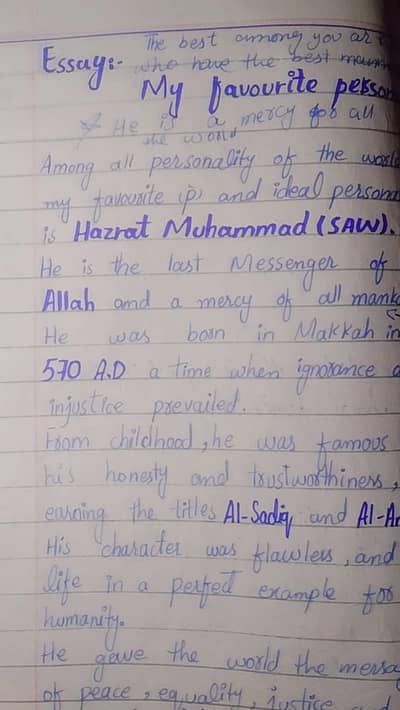 The best among you are
Essay:- who have the best mann
My favourite person
He is a mercy for all
the world
Among all personality of the world
my favourite (p) and ideal persona
is Hazrat Muhammad (SAW).
He is the last Messenger of
Allah and a mercy of all mank
He was born in Makkah in
570 A.D a time when ignorance a
injustice prevailed.
From childhood, he was famous
his honesty and trustworthiness,
earning the titles Al-Sadiq and Al-Am
His character was flawless, and
life in a perfect example for
humanity.
He gave the world the messa
of peace, equality, justice and